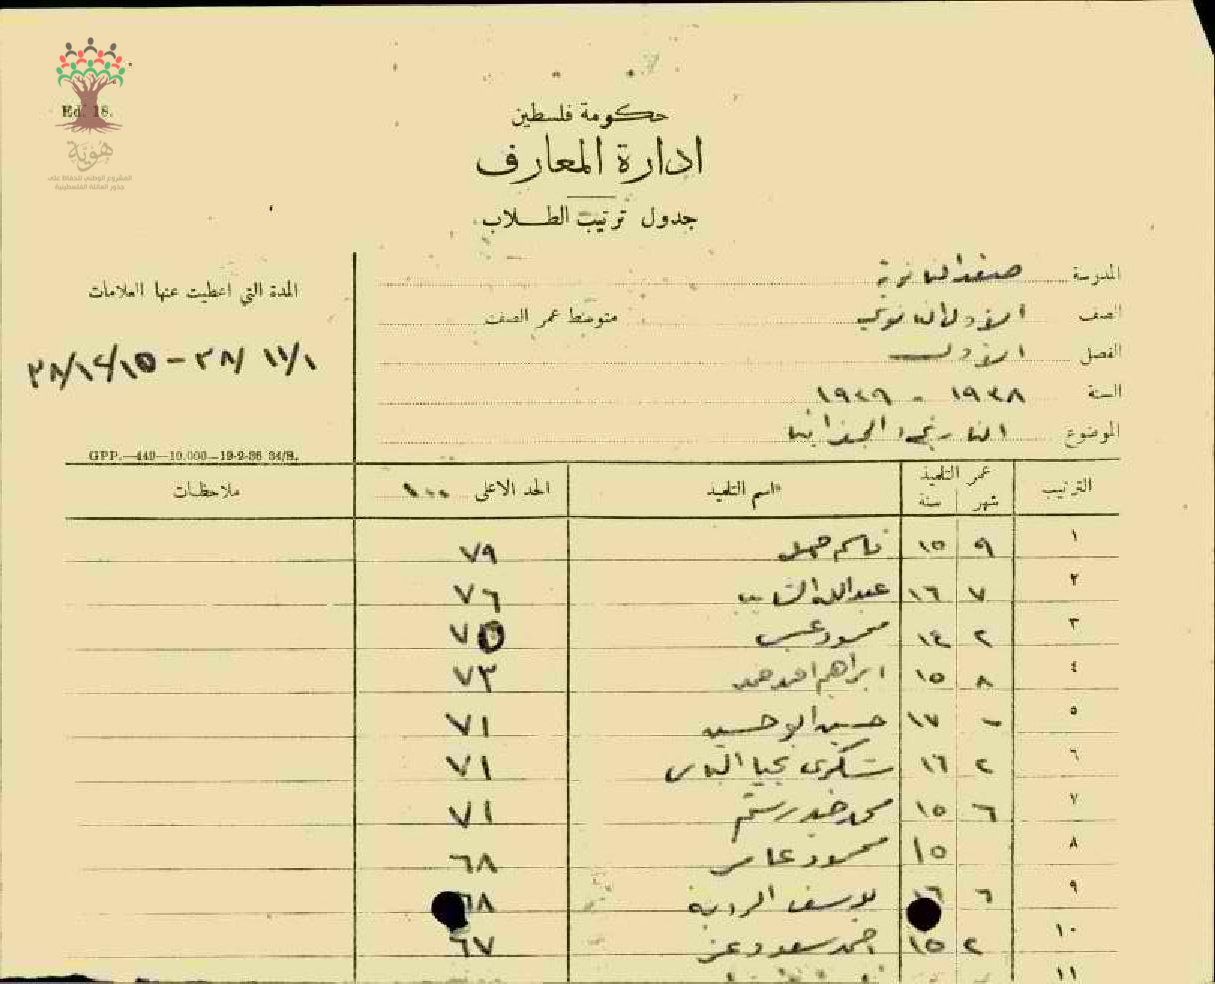 Ed. 18.
هوية
المشروع الوطني للحفاظ على
جذور العائلة الفلسطينية
حكومة فلسطين
ادارة المعارف
جدول ترتيب الطلاب
المدرسة صفد الثانوية
الصف الاول الثانوي متوسط عمر الصف
الفصل الاول
السنة ١٩٣٨ - ١٩٣٩
الموضوع التاريخ، الجغرافيا
المدة التي اعطيت عنها العلامات
٣٨/١١/١ – ٣٨/١٢/١٥
GPP.—449—10.000—19-2-36 34/S.
الترتيب عمر التلميذ شهر سنة اسم التلميذ الحد الاعلى ١٠٠ ملاحظات
١ ٩ ١٥ قاسم ٧٩
٢ ٧ ١٦ عبدالله الشايب ٧٦
٣ ٢ ١٤ محمود ٧٥
٤ ٨ ١٥ ابراهيم احمد حمد ٧٣
٥ - ١٧ حسين ٧١
٦ ٢ ١٦ شكري يحيا ٧١
٧ ٦ ١٥ محمد خير رستم ٧١
٨ ١٥ محمود عامر ٦٨
٩ ٦ ١٦ يوسف ٦٨
١٠ ٢ ١٥ احمد سعود عز ٦٧
١١